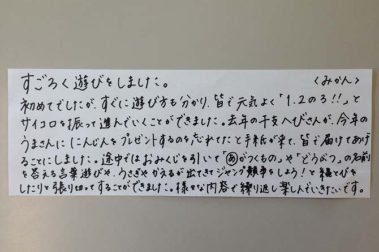 すごろく遊びをしました。
〈みかん〉
初めてでしたが、すぐに遊び方も分かり、皆で元気よく「1.2のろ!!」と
サイコロを振って進んでいくことができました。去年の干支へびさんが、今年の
うまさんににんじんをプレゼントするのを忘れてたと手紙が来て、皆で届けてあげ
ることにしました。途中ではおみくじを引いて「あがつくもの」や「どうぶつ」の名前
を答える言葉遊びや、うさぎやかえるが出てきてジャンプ競争をしよう!と縄とびを
したりと張り切ってすることができました。様々な内容で繰り返し楽しんでいきたいです。